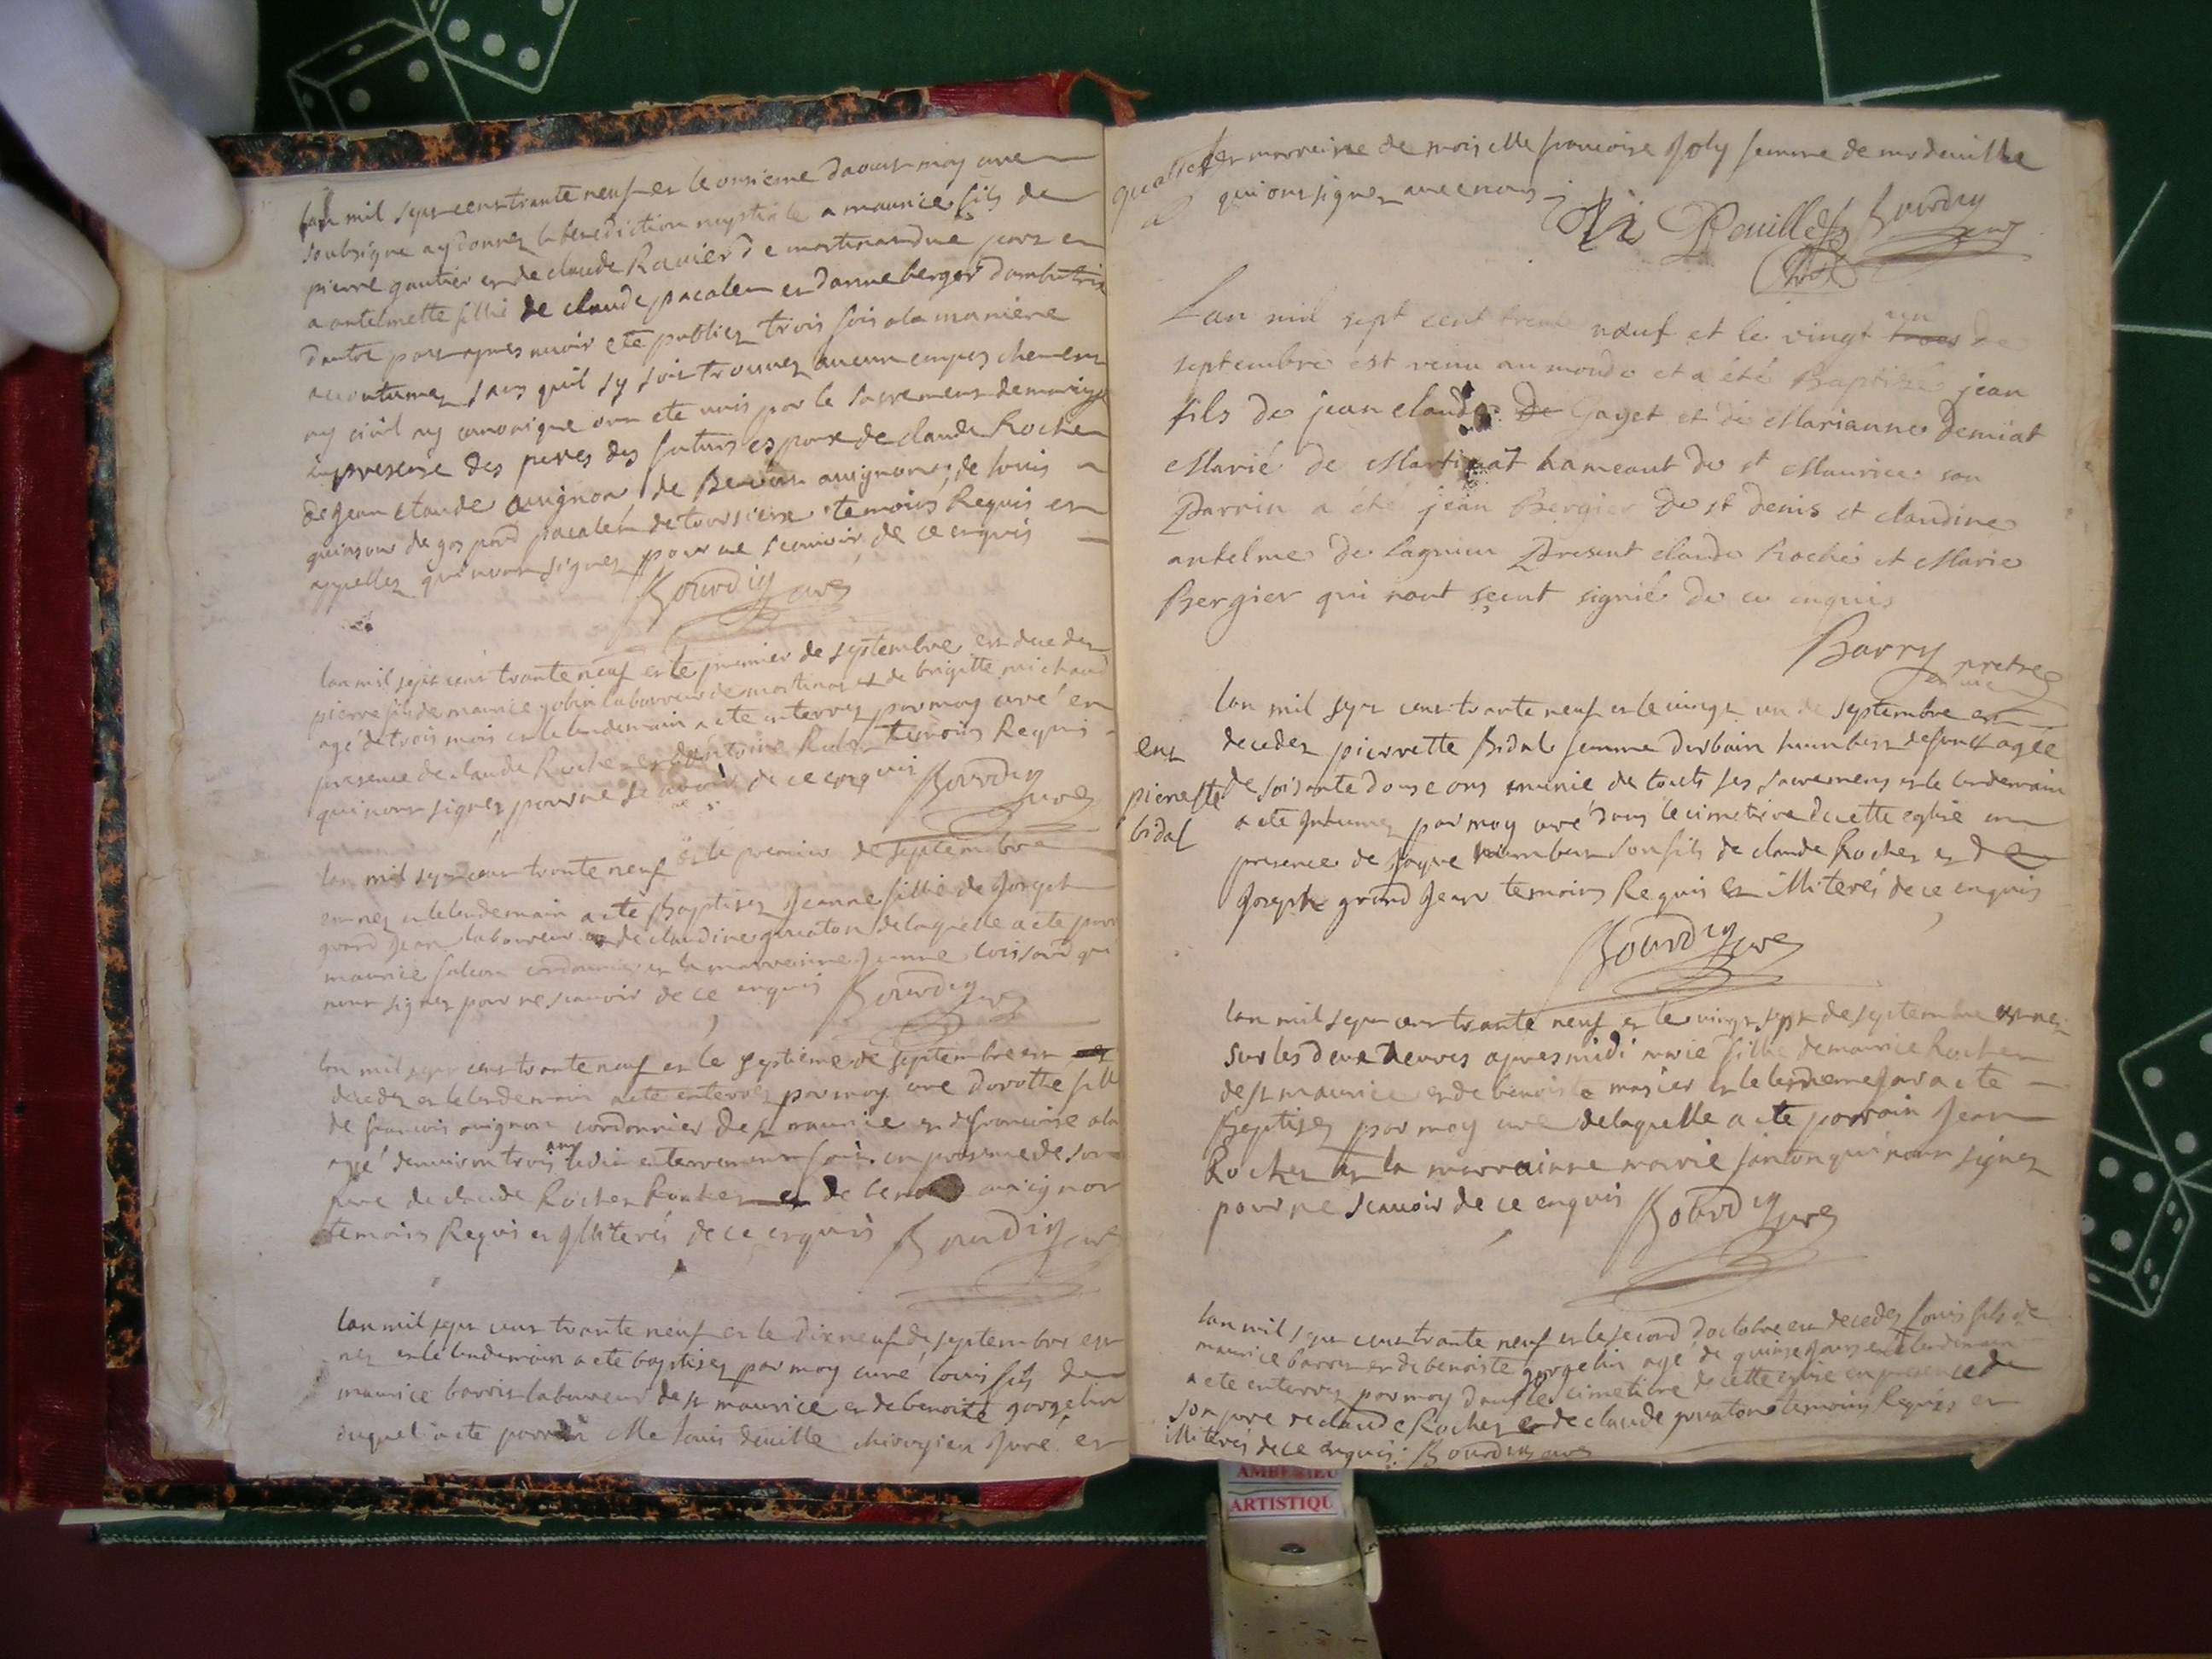 lan mil sept cent trante neuf et le onsieme daoust moy curé
soubsigne ay donnez la benediction nuptiale a maurice fils de
pierre gautier et de claude Ravier de martinas dune part et
a antelmette fillie de claude pacalet et danne berger dambutrix
dautre part apres avoir ete publiez trois fois a la maniere
acoutumez sans quil sy soit trouvez aucun empeschement
ny civil ny canonique ont ete unis par le sacrement de mariage
en presence des peres des futurs espoux de claude Rochet
de Jean claude avignon de Benoit avignon de louis
de gaspard pacalet temoins Requis et
appellez qui nont signez pour ne scavoir de ce enquis
Bourdin curé
lan mil sept cent trante neuf et le premier de septembre est decedez
pierre fils de maurice gobin laboureur de martinas et de brigitte michaud
agé de trois mois et le lendemain a ete enterrez par moy curé en
presence de claude Rochet et dantoine temoins Requis
qui nont signez pour ne scavoir de ce enquis Bourdin curé
lan mil sept cent trante neuf et le premier de septembre
est nez et le lendemain a ete Baptisez Jeanne fillie de Joseph
grand Jean laboureur et de claudine de laquelle a ete parr
maurice falcon cordonnier et la marreinne Jeanne qui
nont signez pour ne scavoir de ce enquis Bourdin curé
lan mil sept cent trante neuf et le septieme de septembre est
decedez et le lendemain a ete enterrez par moy curé dorothé fille
de francois avignon cordonnier de st maurice et de francoise
agé denviron trois ans ledit enterrement fait en presence de son
pere de claude Rochet et de benoit avignon
temoins Requis et Jlliterés de ce enquis Bourdin curé
lan mil sept cent trante neuf et le dix neuf de septembre est
nez et le lendemain a ete baptisez par moy curé louis fils de
maurice barrin laboureur de st maurice et de benoite gorgelin
duquel a ete parrain Me louis deuille chirogien Juré et
et marreine demoiselle francoise Joly femme de mr deuille
qui ont signez avec nous
Deuille Bourdin curé
Lan mil sept cent trente neuf et le vingt un de
septembre est venu au monde et a été Baptisé jean
fils de jean claude Gayet et de Marianne demiat
Marié de Martinat hameaut de st Maurice son
Parrin a été jean Bergier de st denis et claudine
antelme de Lagnieu Present claude Roché et Marie
Bergier qui nont sçeut signié de ce enquis
Barry pretre
lan mil sept cent trante neuf et le vingt un de septembre est
decedez pierrette Bidal femme durbain humbert defunct agée
de soisante douse ans munie de touts ses sacremens et le lendemain
a ete Jnhumez par moy curé dans le cimetiere de cette eglise en
presence de Jaque humbert son fils de claude Rochet et de
Joseph grand Jean temoins Requis et illiterés de ce enquis
ent
pierrette
bidal
Bourdin curé
lan mil sept cent trante neuf et le vingt sept de septembre est nez
sur les deux heures apres midi marie fillie de maurice Rochet
de st maurice et de benoiste masier et le lendemain a ete
Baptisez par moy curé de laquelle a ete parrain Jean
Rochet et la marrainne marie janton qui nont signez
pour ne scavoir de ce enquis Bourdin curé
lan mil sept cent trante neuf et le second doctobre est decedez louis fils de
maurice barrin et de benoiste gorgelin agé de quinse jours et le lendemain
a ete enterrez par moy dans le cimetiere de cette eglise en presence de
son pere de claude Rochet et de claude temoins Requis et
illiterés de ce enquis Bourdin curé
AMBERIEU
ARTISTIQU